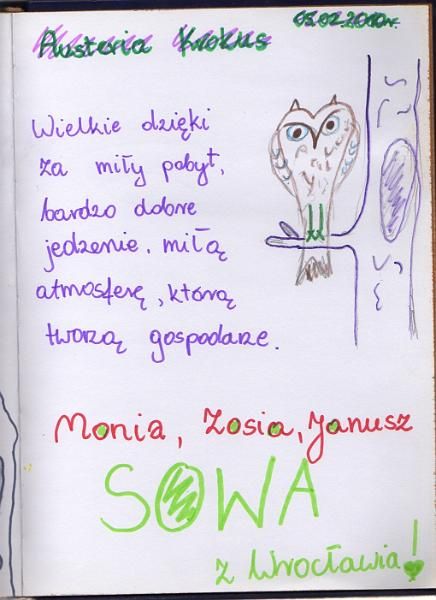 Austeria Krokus 05.02.2010r.
Wielkie dzięki
za miły pobyt,
bardzo dobre
jedzenie, miłą
atmosferę, którą
tworzą gospodarze.
Monia, Zosia, Janusz
SOWA
z Wrocławia!